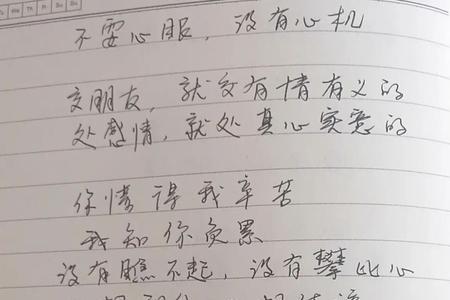 不耍心眼，没有心机
交朋友，就交有情有义的
处感情，就处真心实意的
你懂得我辛苦
我知你负累
没有瞧不起，没有攀比心